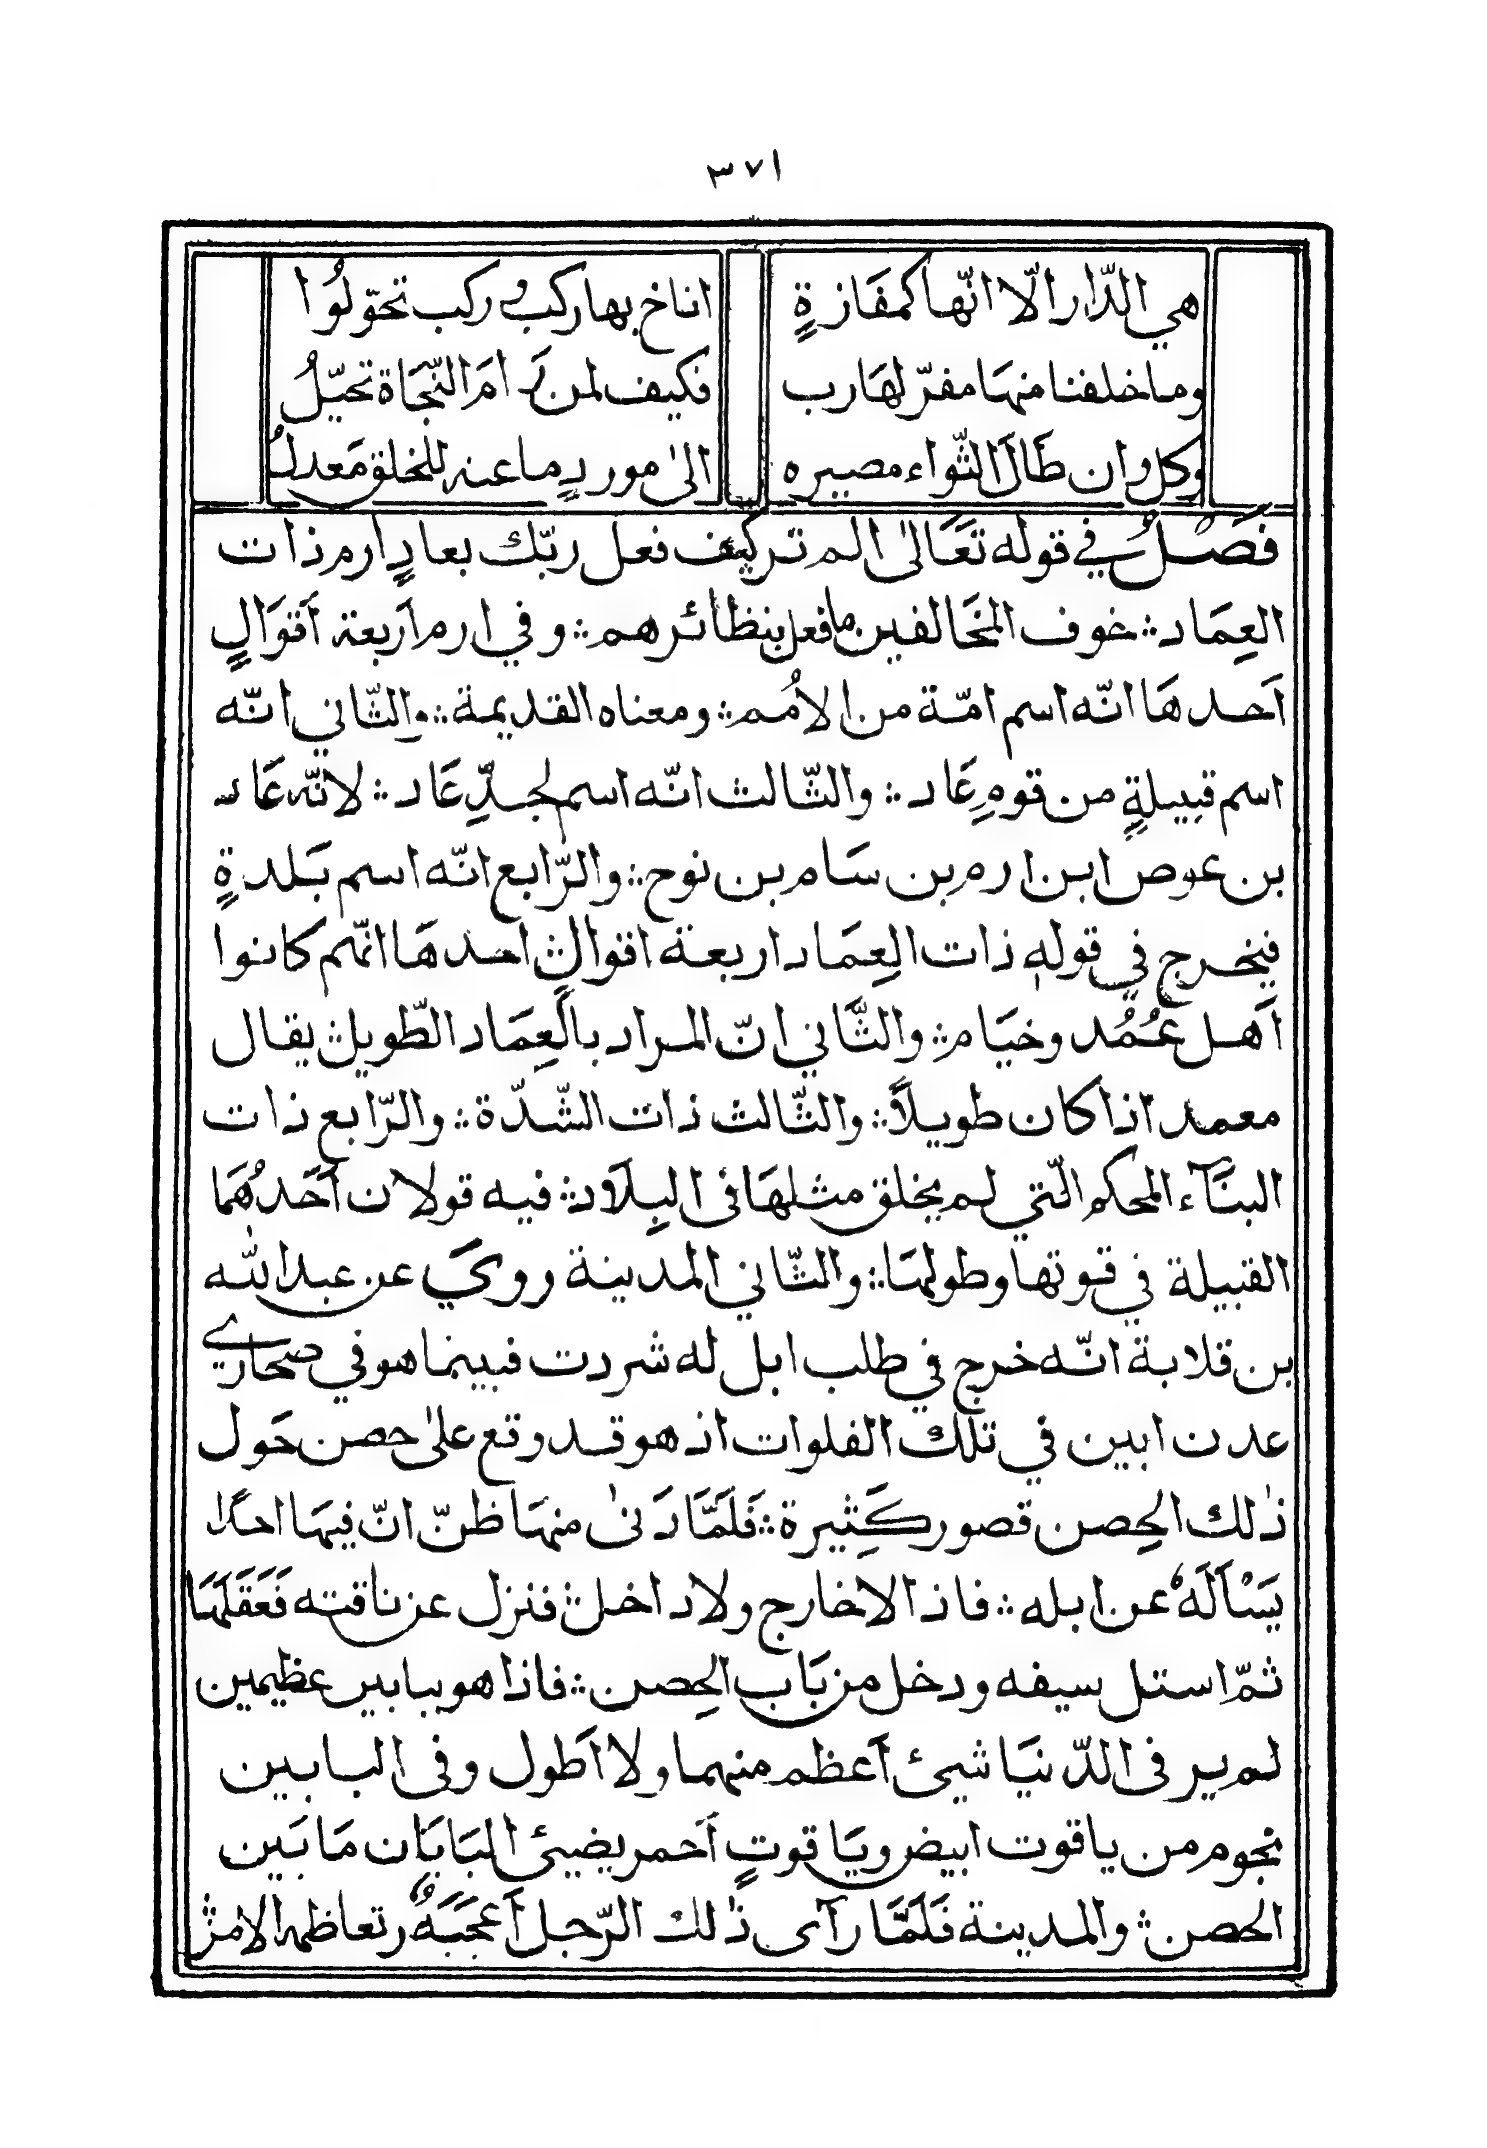 ٣٧١
هي الدّار الّا انّها كمفَازةٍ اناخ بها ركبٌ وركب تحوّلُوا
وما خلفنا منهَا مفرّ لهَارب فكيف لمن رَامَ النّجَاة تحيّلُ
وكلٌ وان طَالَ الثّواء مصيره الىٰ موردٍ ما عنه للخلق مَعدلُ
فَصْلٌ في قوله تعَالىٰ الم تركيف فعل ربّك بعادٍ ارم ذات
العِمَاد ؞ خوف المخَالفين ما فعل بنظَائرهم ؞ وفي ارم اَربعة اَقوَالٍ
اَحدهَا انّه اسم امّة من الاُمم ؞ ومعناه القديمة ؞ والثّاني انّه
اسم قبيلةٍ من قومِ عَاد ؞ والثّالث انّه اسم لجدِّ عَاد ؞ لانّه عَاد
بن عوص ابن ارم بن سَام بن نوح ؞ والرّابع انّه اسم بَلدةٍ
فيخرج في قوله ذات العِمَاد اربعة اقوالٍ احدهَا انّهم كانوا
اَهل عُمُد وخيَام ؞ والثَّاني انّ المراد بالعِمَاد الطّويل ؞ يقال
معمد اذا كان طويلاً ؞ والثّالث ذات الشّدّة ؞ والرّابع ذات
البنَآء المحكم الّتي لم يخلق مثلهَا في البِلَاد ؞ فيه قولان اَحَدُهُمَا
القبيلة في قوتها وطولهَا ؞ والثّاني المدينة وروي عن عبد الله
بن قلابة انّه خرج في طلب ابل له شردت فبينما هو في صحاري
عدن ابين في تلك الفلوات اذ هو قد وقع علىٰ حصن حَول
ذٰلك الحِصن قصور كَثِيرة ؞ فَلَمَّا دَنىٰ منهَا ظنّ انّ فيهَا احدًا
يَسْاَلَهُ عن ابله ؞ فاذ الا خارج ولا داخل ؞ فنزل عن ناقته فَعَقَلَهَا
ثمّ استل سيفه ودخل من بَاب الحِصن ؞ فاذا هو ببابين عظيمين
لم ير في الدّنيَا شيئ اَعظم منهما ولا اَطول وفي البابين
نجوم من ياقوت ابيض ويَاقوتٍ اَحمر يضيئ البَابَان مَا بَين
الحصن ؞ والمدينة فَلَمَّا رآى ذٰلك الرّجل اَعجَبَهُ وتعاظمه الامرُ